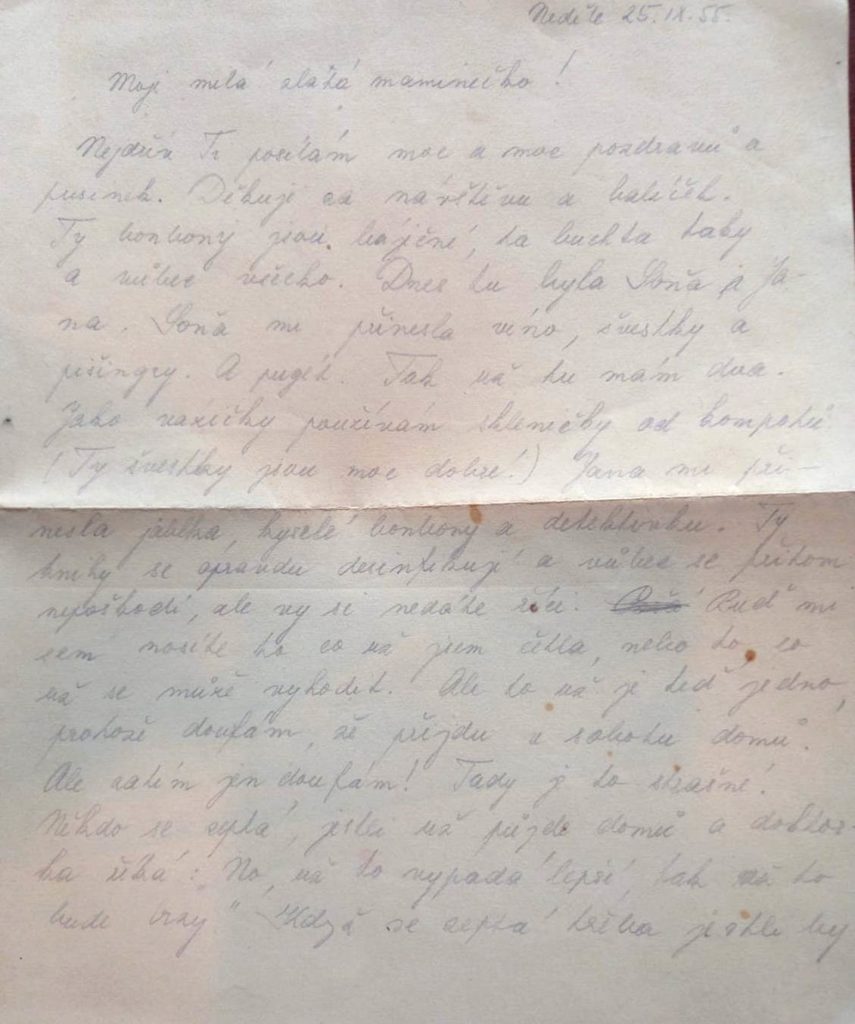 Neděle 25.IX.55.
Moji milá zlatá maminečko!
Nejdřív Ti posílám moc a moc pozdravů a
pusinek. Děkuji za návštěvu a balíček.
Ty bonbony jsou báječné, ta buchta taky
a vůbec všecho. Dnes tu byla Soňa a Ja-
na. Soňa mi přinesla víno, švestky a
pišingry. A pugét. Tak už tu mám dva.
Jako vazičky používám skleničky od kompotů
(Ty švestky jsou moc dobré!) Jana mi při-
nesla jablka, kyselé bonbony a detektivku. Ty
knihy se opravdu desinfikují a vůbec se přitom
nepoškodí, ale vy si nedáte říci. Buď mi
sem nosíte to co už jsem četla, nebo to, co
už se může vyhodit. Ale to už je teď jedno,
protože doufám, že přijdu v sobotu domů.
Ale zatím jen doufám! Tady je to strašné!
Někdo se zeptá, jestli už půjde domů a doktor-
ka říká: "No, už to vypadá lepší, tak už to
bude brzy" Když se zeptá třeba jestli by